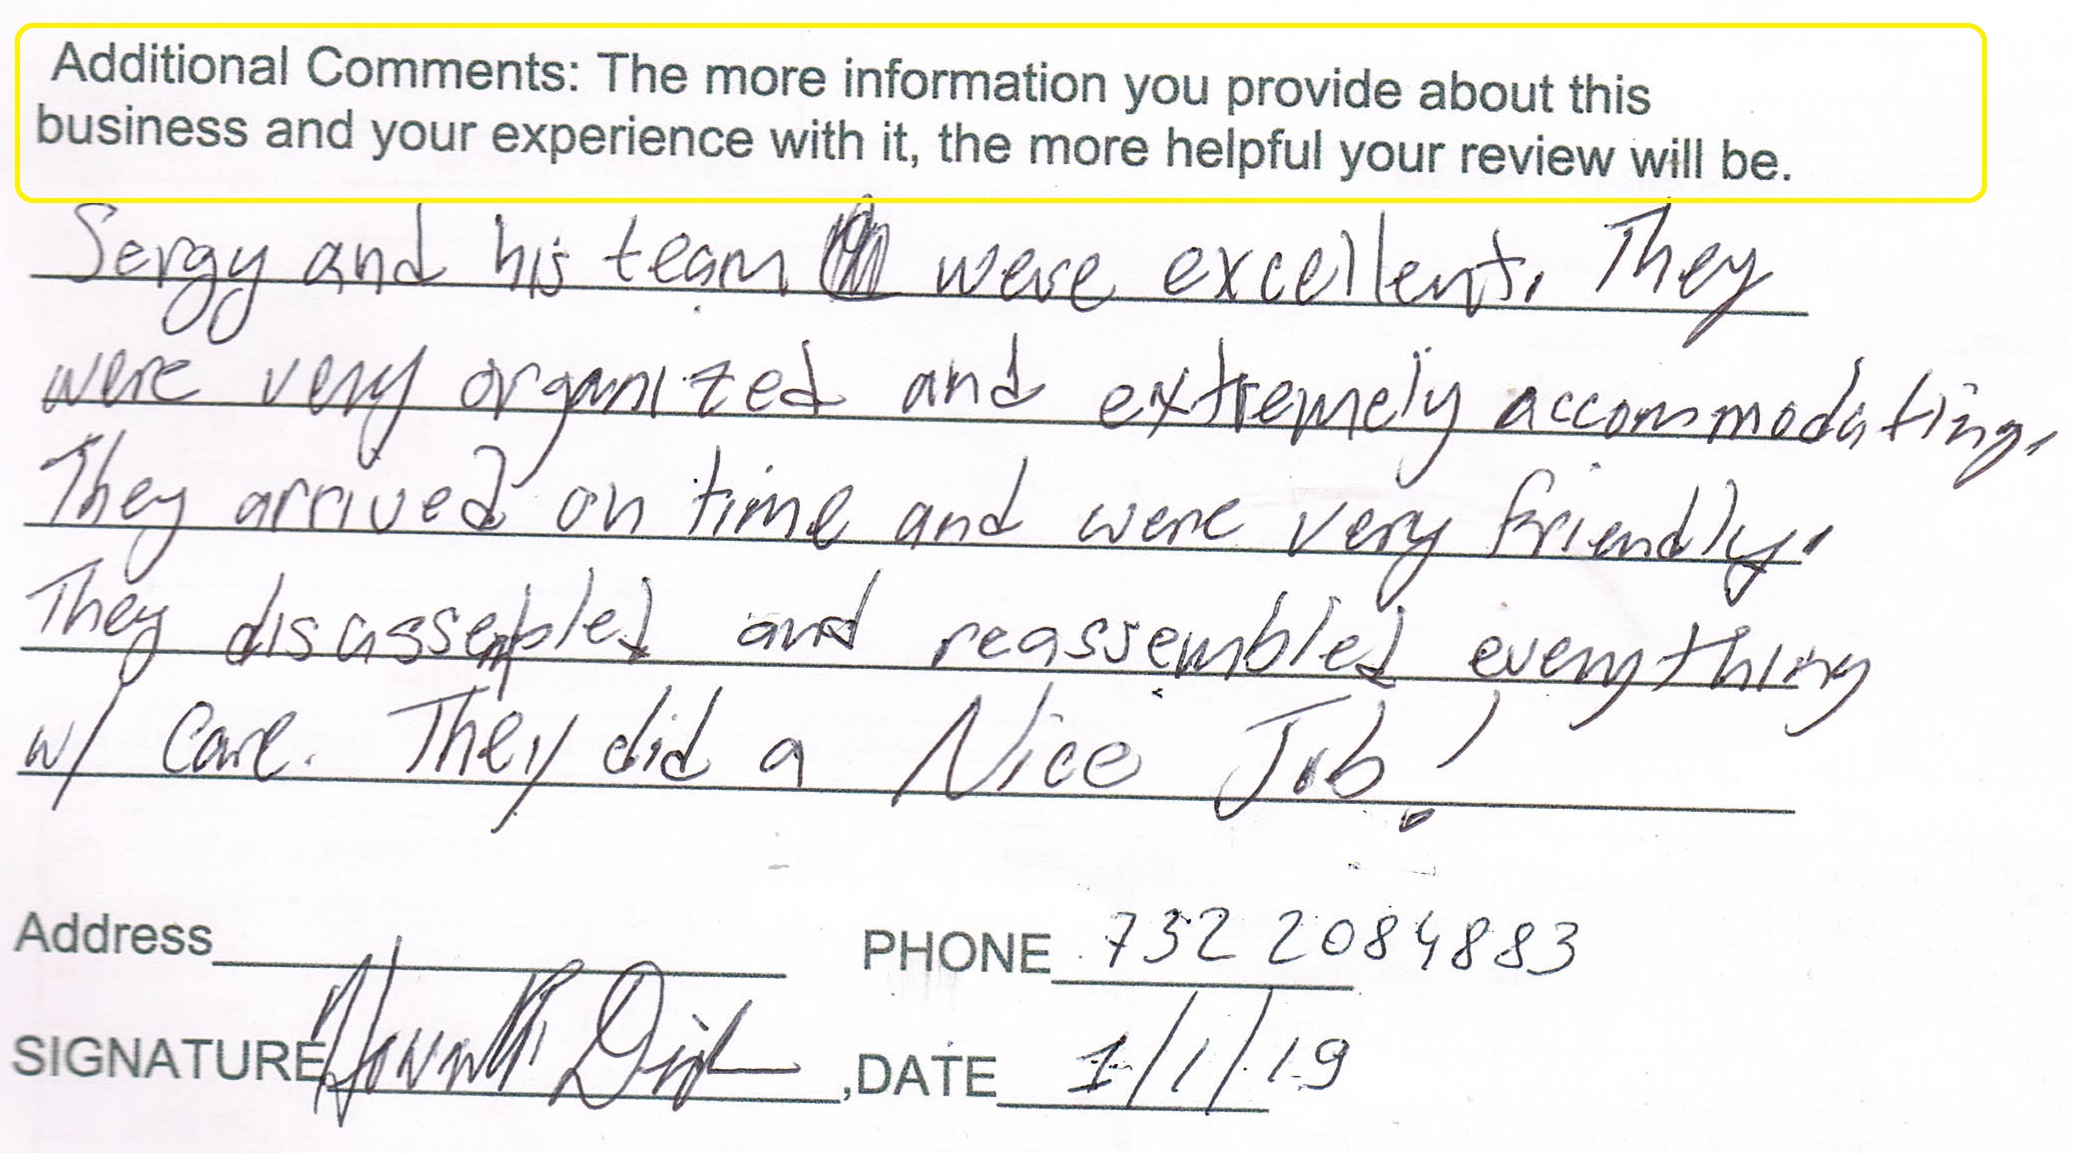 Additional Comments: The more information you provide about this
business and your experience with it, the more helpful your review will be.
Sergy and his team were excellent. They
were very organized and extremely accommodating.
They arrived on time and were very friendly.
They disassembled and reassembled everything
w/ care. They did a Nice Job!
Address PHONE 732 2084883
SIGNATURE ,DATE 1/1/19